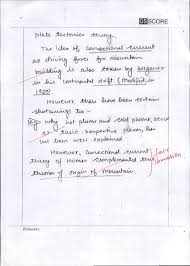 GSSCORE
plate tectonics theory.
The idea of convectional current
as driving force for mountain
building is also taken by Wegener
in his continental drift (Modified in
However, there have been certain
shortcomings too -
Why hot plums and cold plumes, occur
at their respective places, has
not been well explained
However, convectional current
theory of Holmes complemented the
theories of origin of mountain.
Remarks